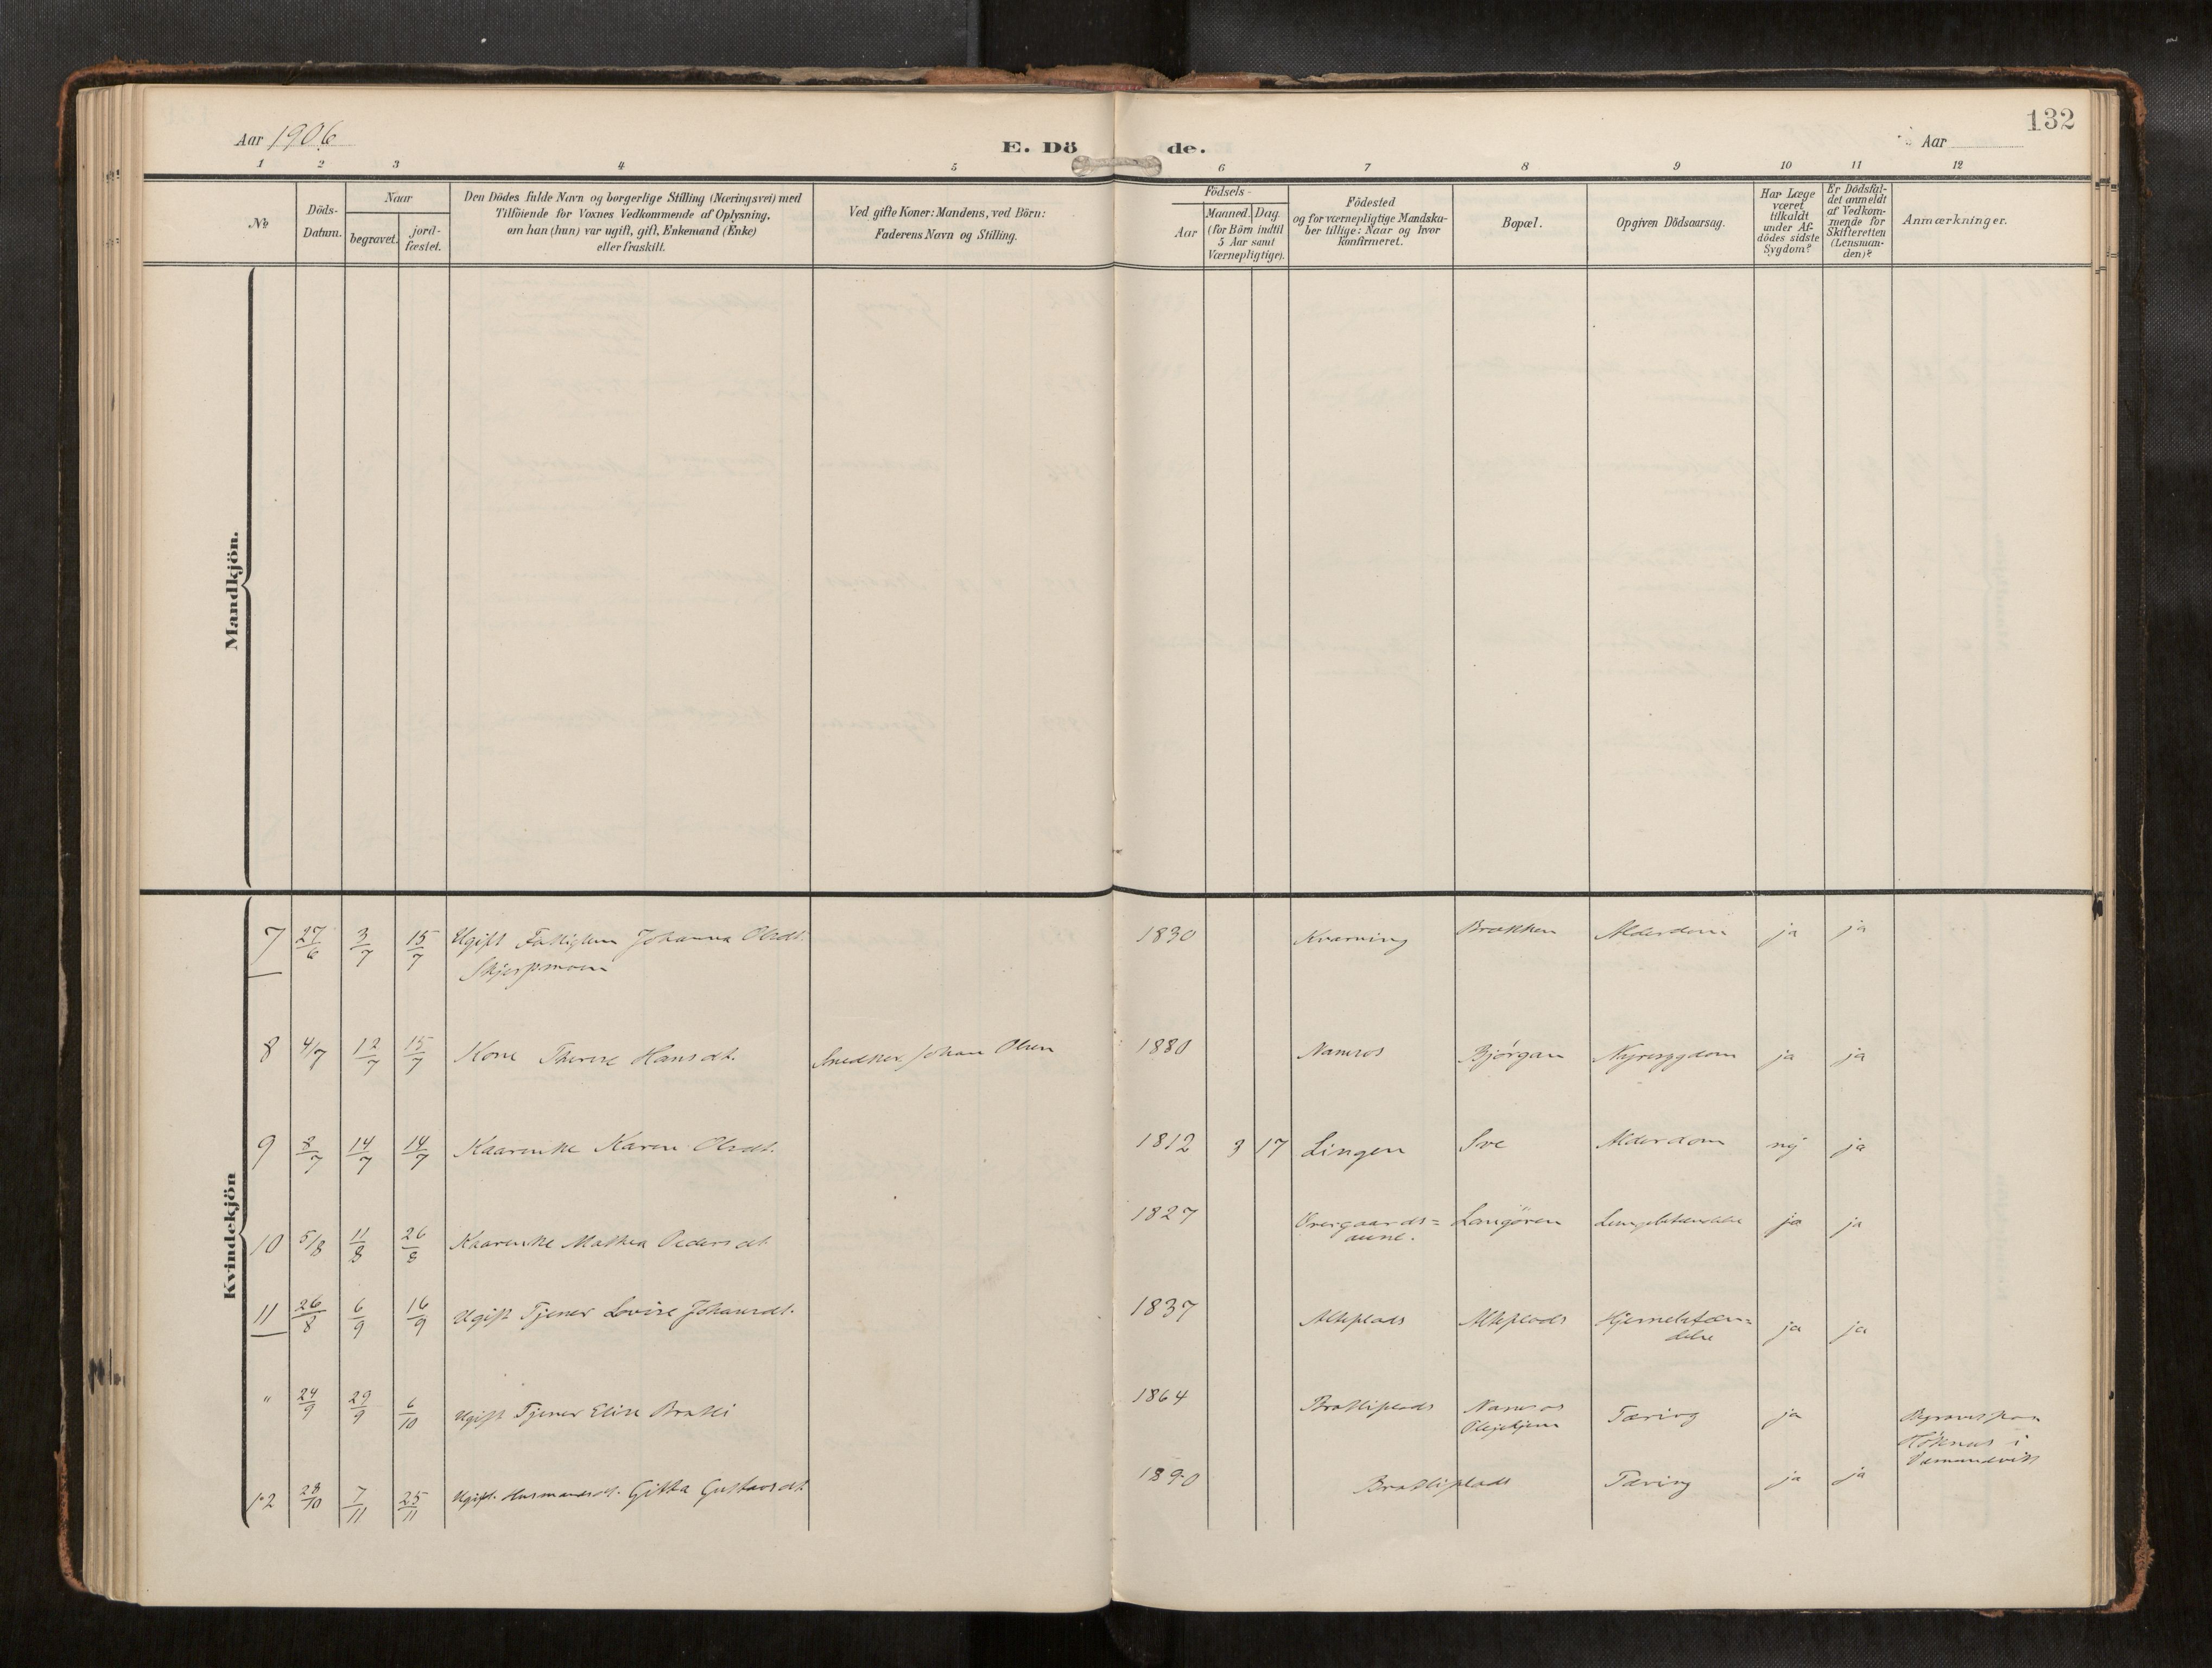 132
Aar 1906
E. Dö de.
Aar
1 2 3 4 5 6 7 8 9 10 11 12
No
Döds-
Datum.
Naar
begravet.
jord-
fæstet.
Den Dödes fulde Navn og borgerlige Stilling (Næringsvei) med
Tilföiende for Voxnes Vedkommende af Oplysning,
om han (hun) var ugift, gift, Enkemand (Enke)
eller fraskilt.
Ved gifte Koner: Mandens, ved Börn:
Faderens Navn og Stilling.
Födsels-
Aar
Maaned. Dag
(for Börn indtil
5 Aar samt
Værnepligtige).
Födested
og for værnepligtige Mandska-
ber tillige: Naar og hvor
konfirmeret.
Bopæl.
Opgiven Dödsaarsag.
Har Læge
været
tilkaldt
under Af-
dödes sidste
Sygdom?
Er Dödsfal-
det anmeldt
af Vedkom-
mende for
Skifteretten
(Lensman-
den)?
Anmærkninger.
Mandkjön.
Kvindekjön
7 27/6 3/7 15/7 Ugift Fattiglem Johanna Olsdt. 1830 Kvarving Brakken Alderdom ja ja
Skjerpmoen
8 4/7 12/7 15/7 Kone Therese Hansdt. Snedker Johan Olsen 1880 Namsos Bjørgan Nyresygdom ja ja
9 8/7 14/7 14/7 Kaarenke Karen Olsdt. 1812 3 17 Lingen Sve Alderdom nej ja
10 5/8 11/8 26/8 Kaarenke Mathea Pedersdt. 1827 Overgaards= Langøren ja ja
aune.
11 26/8 6/9 16/9 Ugift Tjener Lovise Johansdt. 1837 Hjernebetæn= ja ja
delse
" 24/9 29/9 6/10 Ugift Tjener Elise Bratli 1864 Bratliplads Namsos Tæring ja Begravet paa
Plejehjem Høknes i
Vemundvik
12 28/10 7/11 25/11 Ugift Husmandsdt. Gitta Gustavsdt. 1890 Bratliplads Tæring ja ja